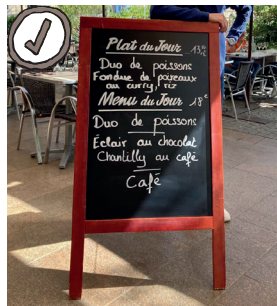 Plat du Jour 13€
Duo de poissons
Fondue de poireaux
au curry, riz
Menu du Jour 18€
Duo de poissons
Eclair au chocolat
Chantilly au café
Café